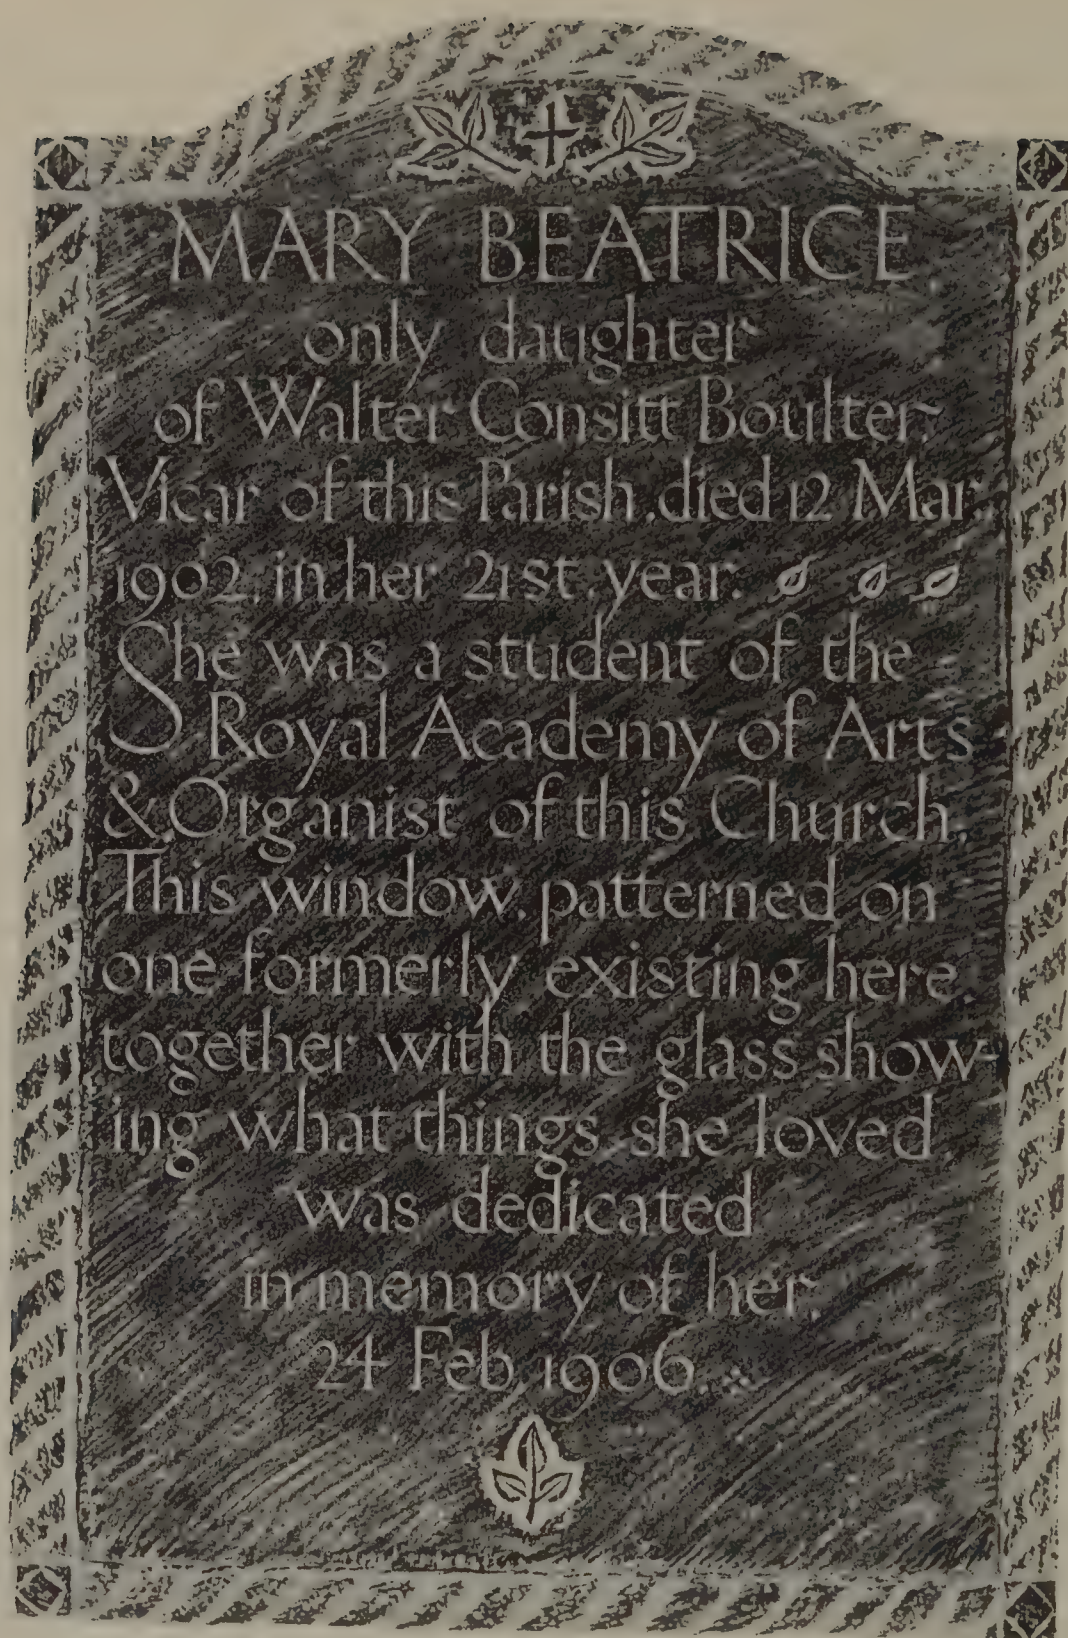 MARY BEATRICE
only daughter
of Walter Consitt Boulter,
Vicar of this Parish, died 12 Mar:
1902, in her 21st year:
She was a student of the
Royal Academy of Arts
& Organist of this Church,
This window, patterned on
one formerly existing here,
together with the glass show-
ing what things she loved,
was dedicated
in memory of her,
24 Feb. 1906.